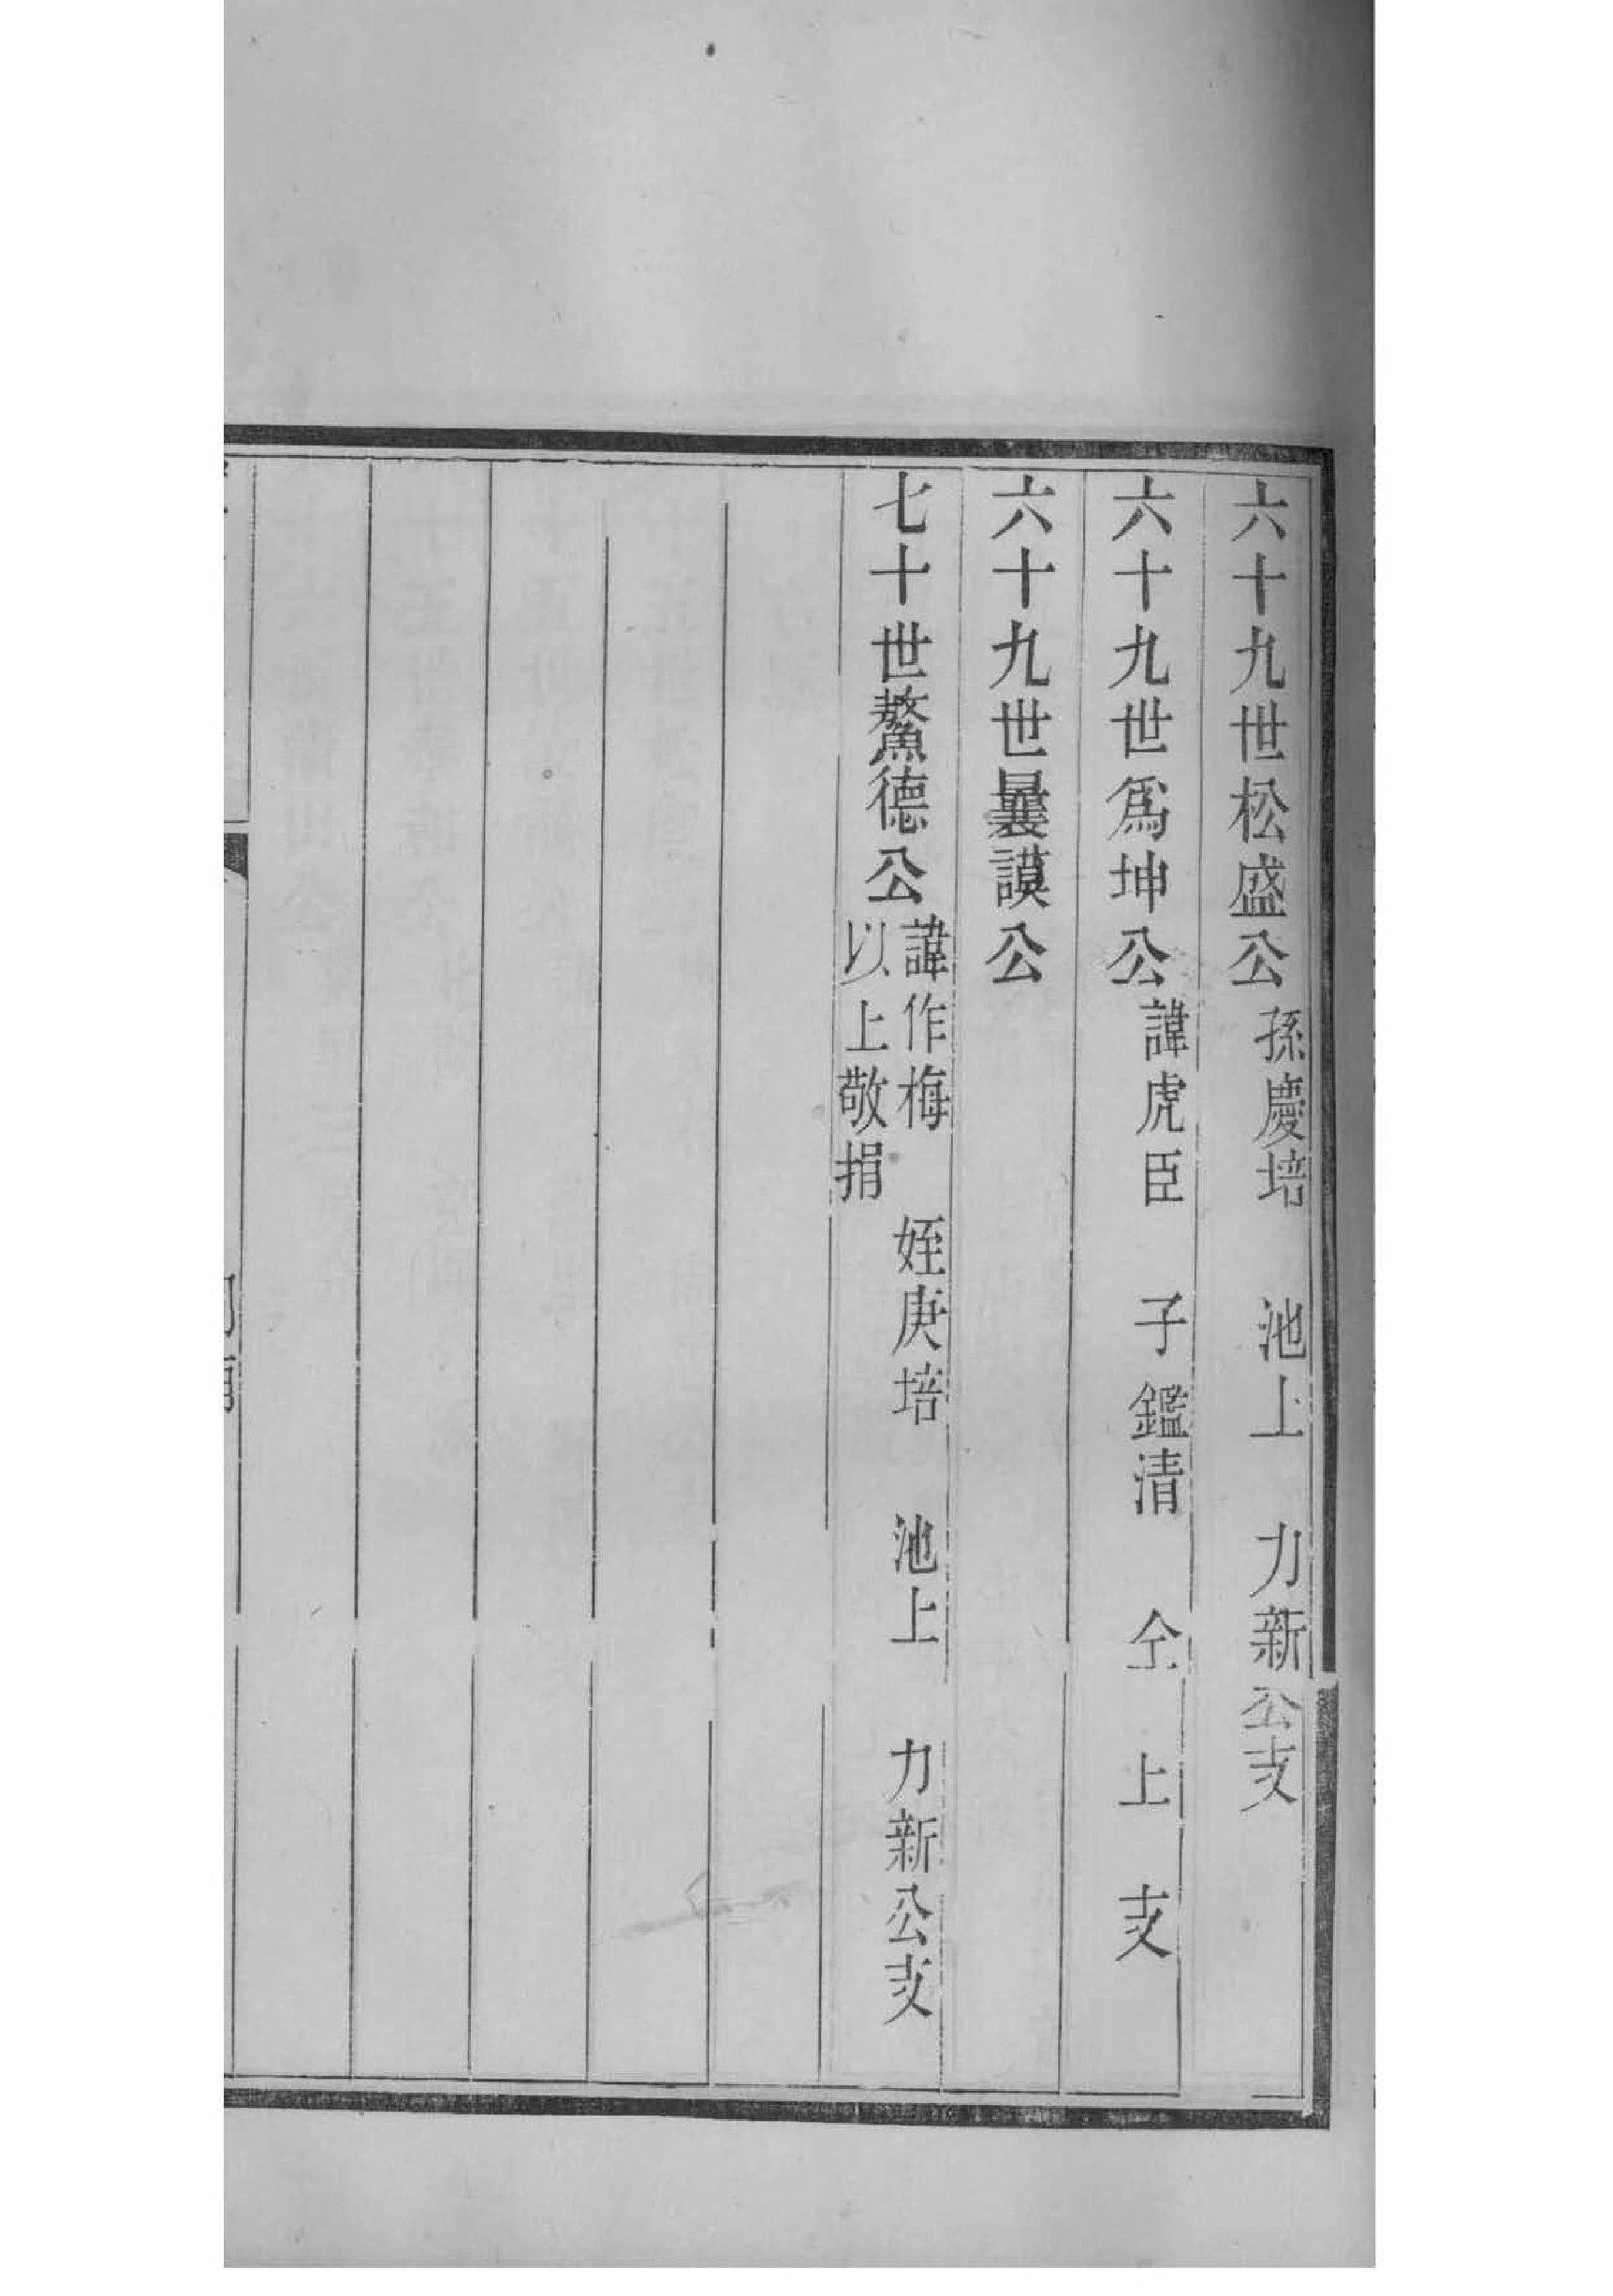 六十九世松盛公 孫慶培 池上 力新公支
六十九世爲坤公 諱虎臣 子鑑清 仝上支
六十九世曩謨公
七十世鰲德公 諱作梅 姪庚培 池上 力新公支
以上敬捐